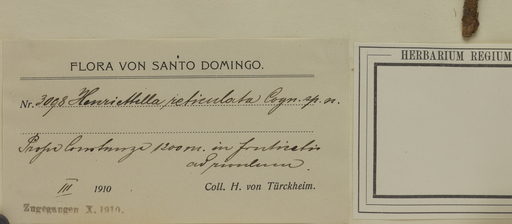 FLORA VON SANTO DOMINGO.
Nr. 3098 Henriettella reticulata Cogn. sp. n.
Prope Constanza 1200 m. in fruticetis
ad rivulum.
III 1910 Coll. H. von Türckheim.
Zugegangen X. 1910.
HERBARIUM REGIUM